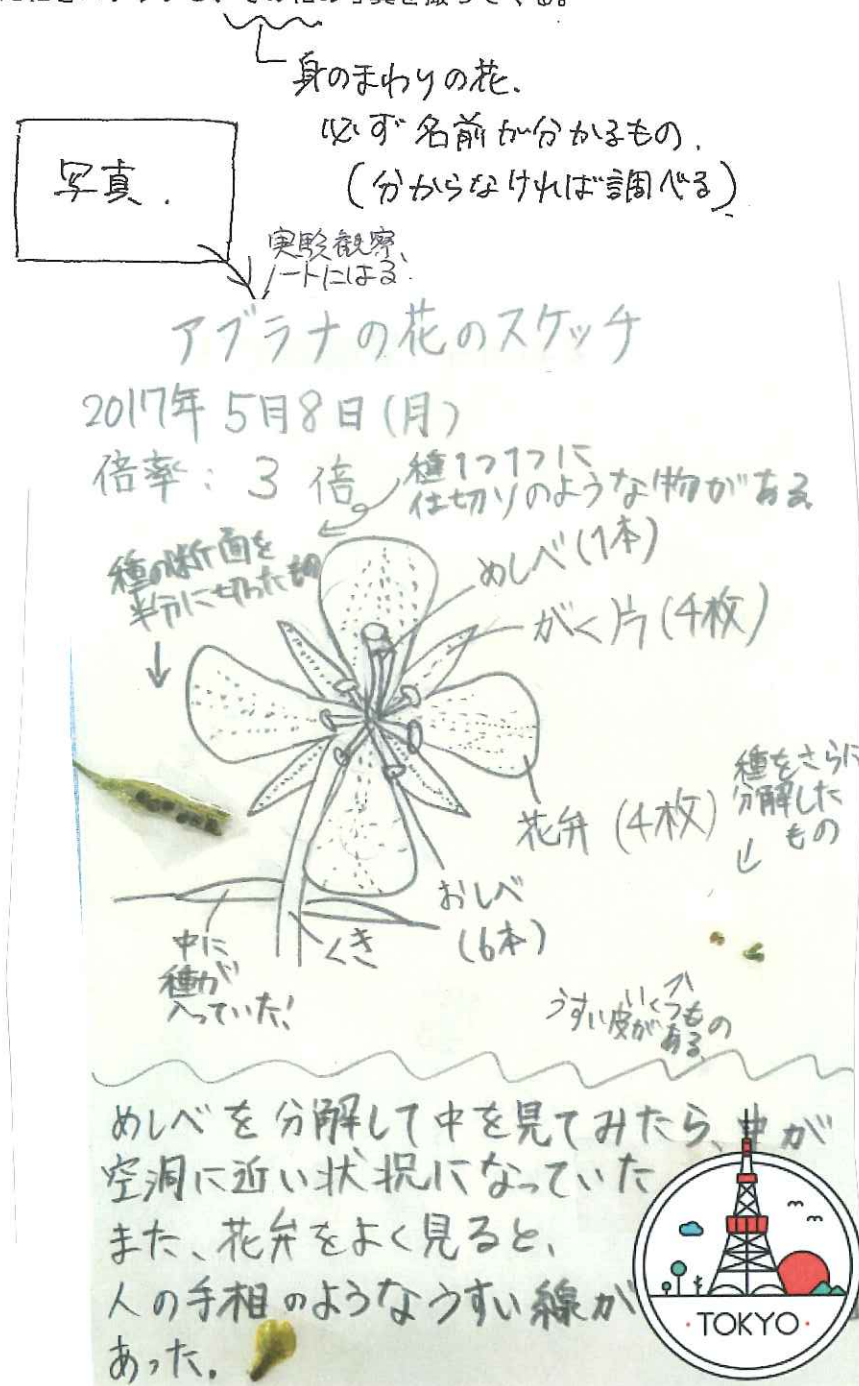 身のまわりの花.
必ず名前が分かるもの.
(分からなければ調べる)
写真.
実験観察
ノートにはる.
アブラナの花のスケッチ
2017年5月8日(月)
倍率:3倍
種1つ1つに
仕切りのような物がある
種の断面を
半分に切ったもの
めしべ(1本)
がく片(4枚)
花弁(4枚)
種をさらに
分解した
もの
おしべ
(6本)
くき
中に
種が
入っていた!
うすい皮が
いくつもの
ある
めしべを分解して中を見てみたら、中が
空洞に近い状況になっていた
また、花弁をよく見ると、
人の手相のようなうすい線が
あった.
・TOKYO・